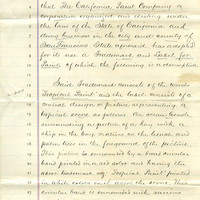 that The California Paint Company a
corporation organized and existing under
the laws of the State of California and
doing business in the city and county of
San Francisco State aforesaid, has adopted
for its use a Trademark and Label for
Paint of which the following is a description
Said Trademark consists of the words
"Tropical Paint" and the label consists of a
design or picture representing a
tropical scene as follows. An ocean beach
surrounding a portion of a bay with a
ship in the bay, on the beach and
palm trees in the foreground of the picture.
This picture is surrounded by a circular
band printed in a red color and having the
above trademark "Tropical Paint" printed
in white colors
circular band is surrounded with